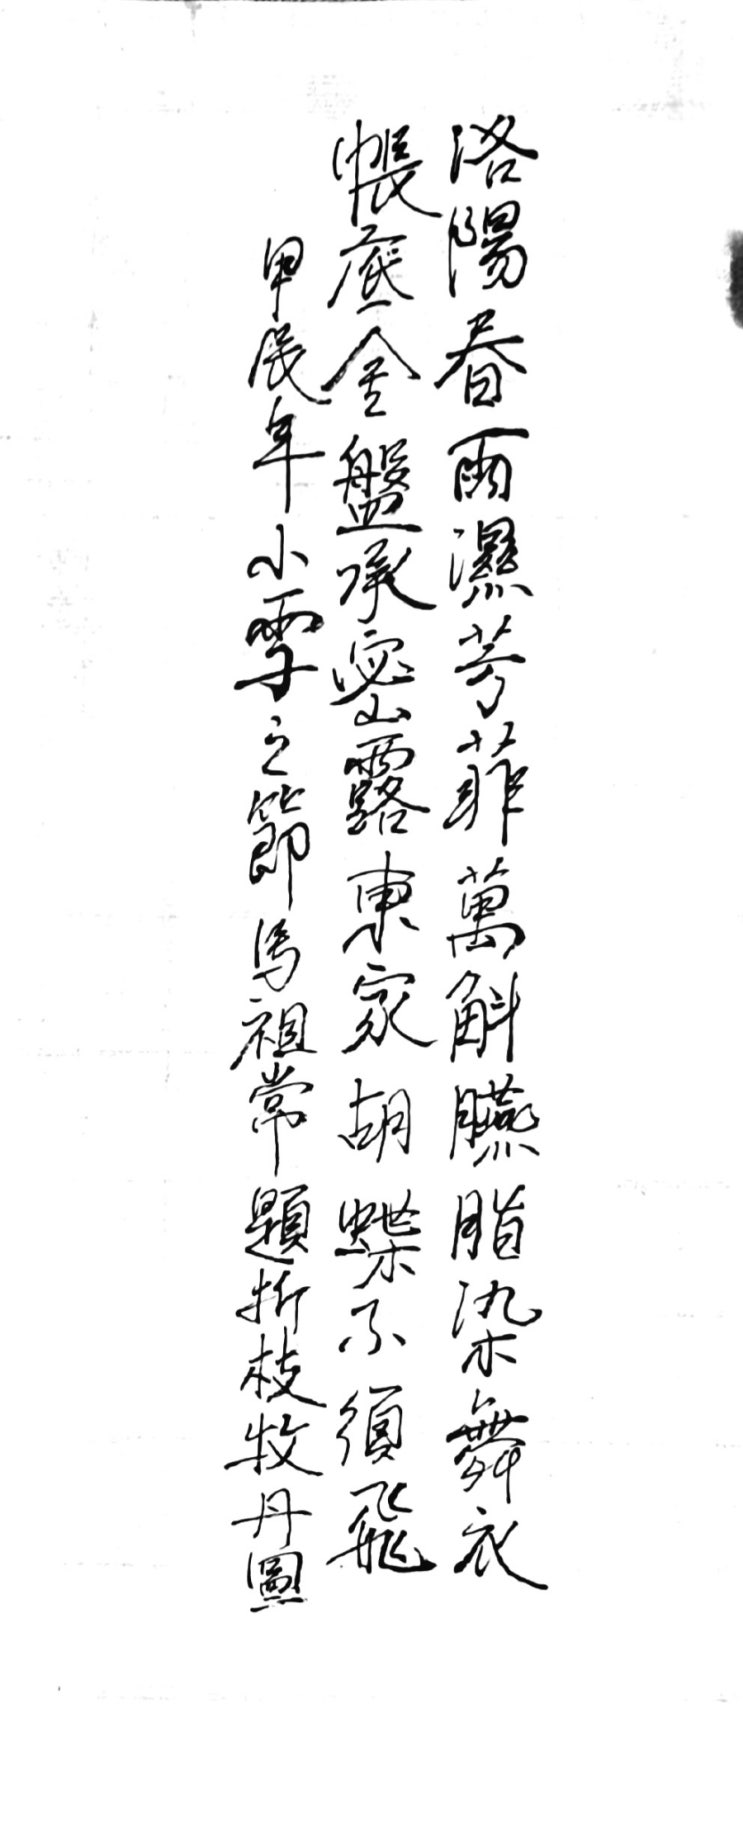 洛陽春雨濕芳菲萬斛臙脂染舞衣
帳底金盤承密露東家胡蝶不須飛
甲辰年小雪之節馬祖常題折枝牡丹圖